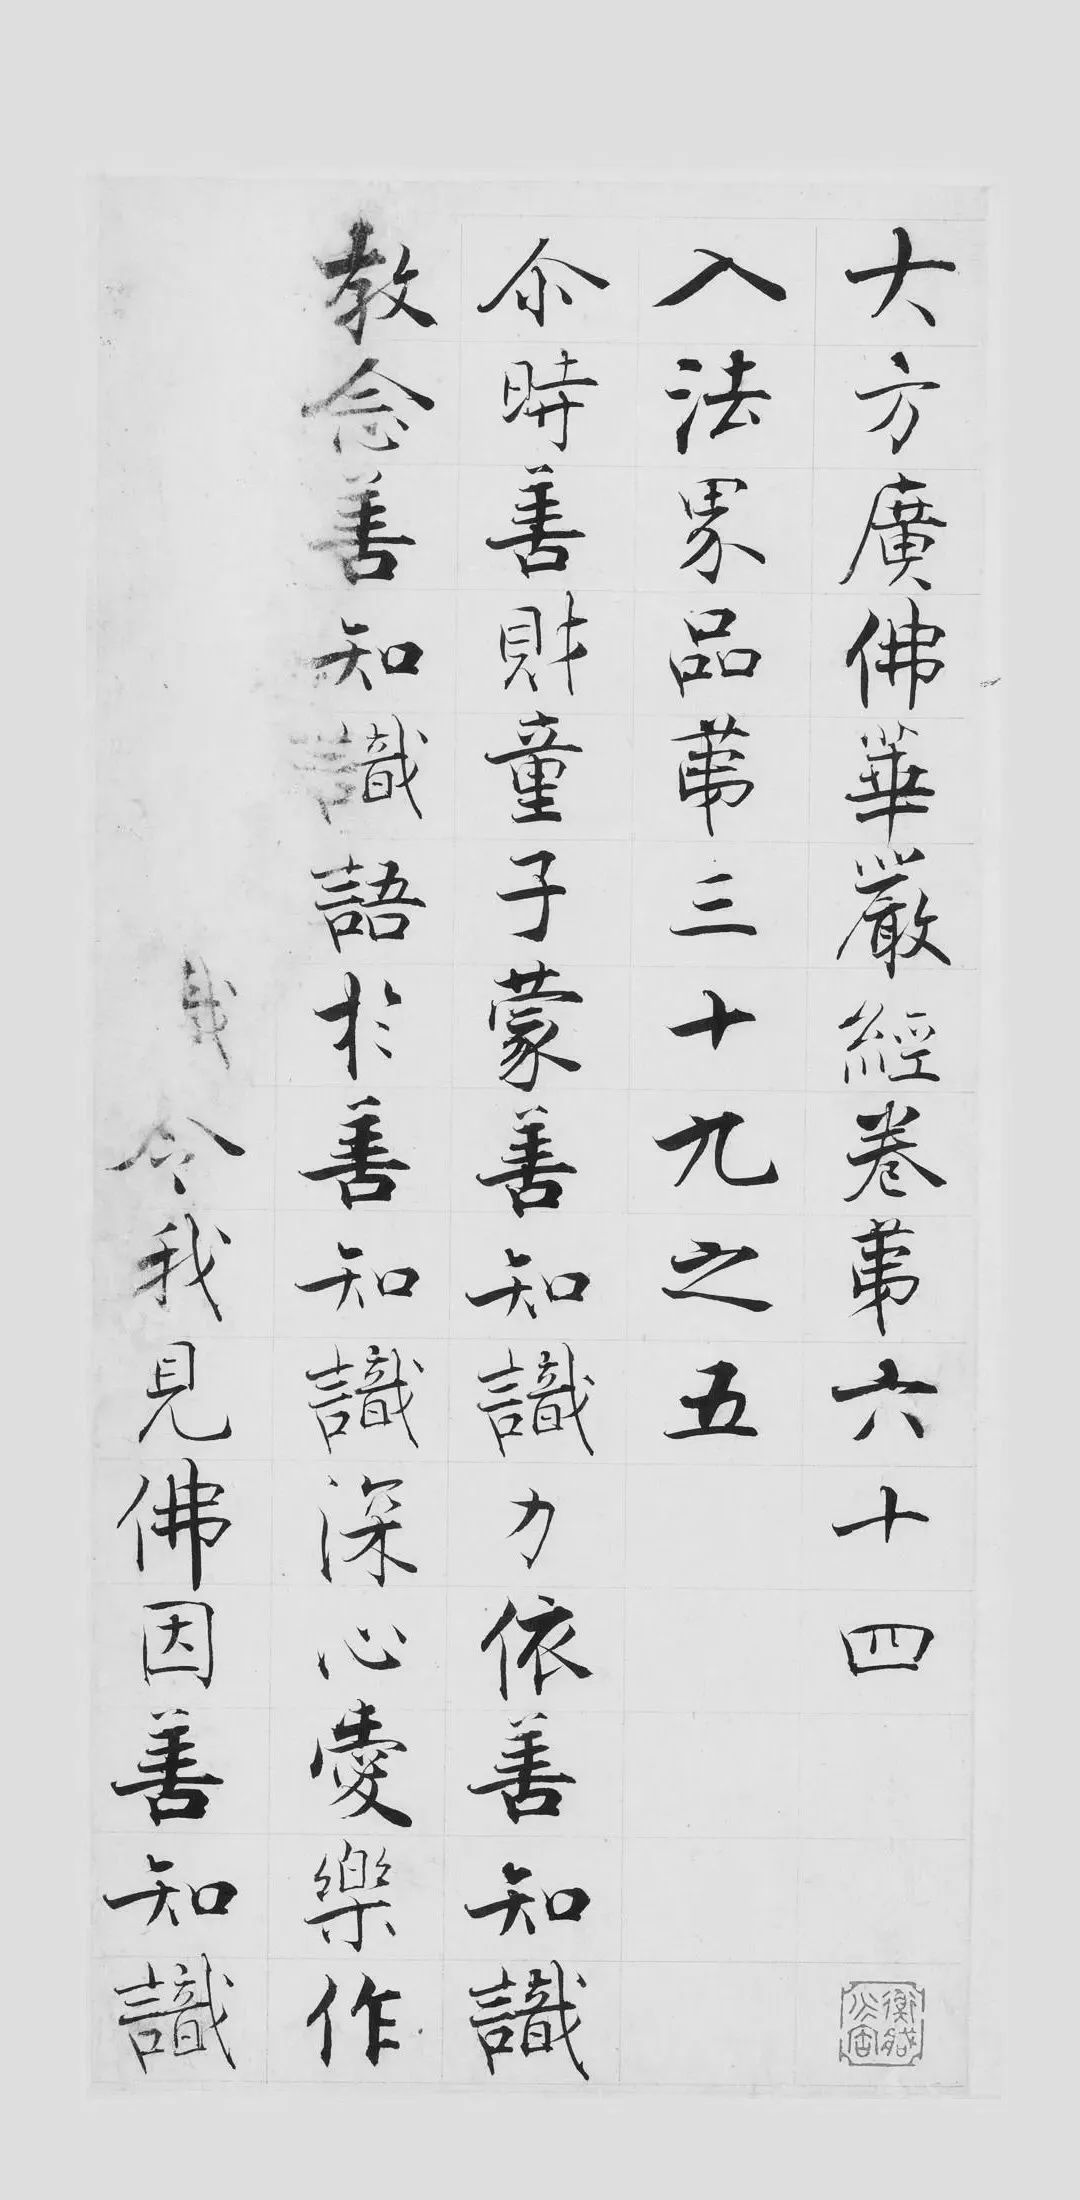 大方廣佛華嚴經卷苐六十四
入法界品苐三十九之五
尒時善財童子蒙善知識力依善知識
教念善知識語於善知識深心愛樂作
令我見佛因善知識